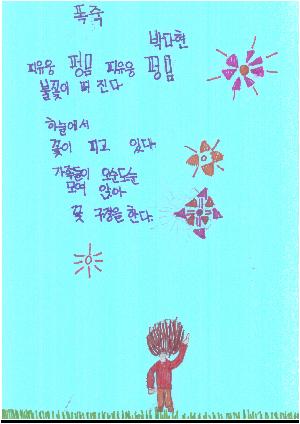 폭죽
박다현
피유웅 펑붐 피유웅 펑붐
불꽃이 퍼 진다
하늘에서
꽃이 피고 있다.
가족들이 오순도순
모여 앉아
꽃 구경을 한다.